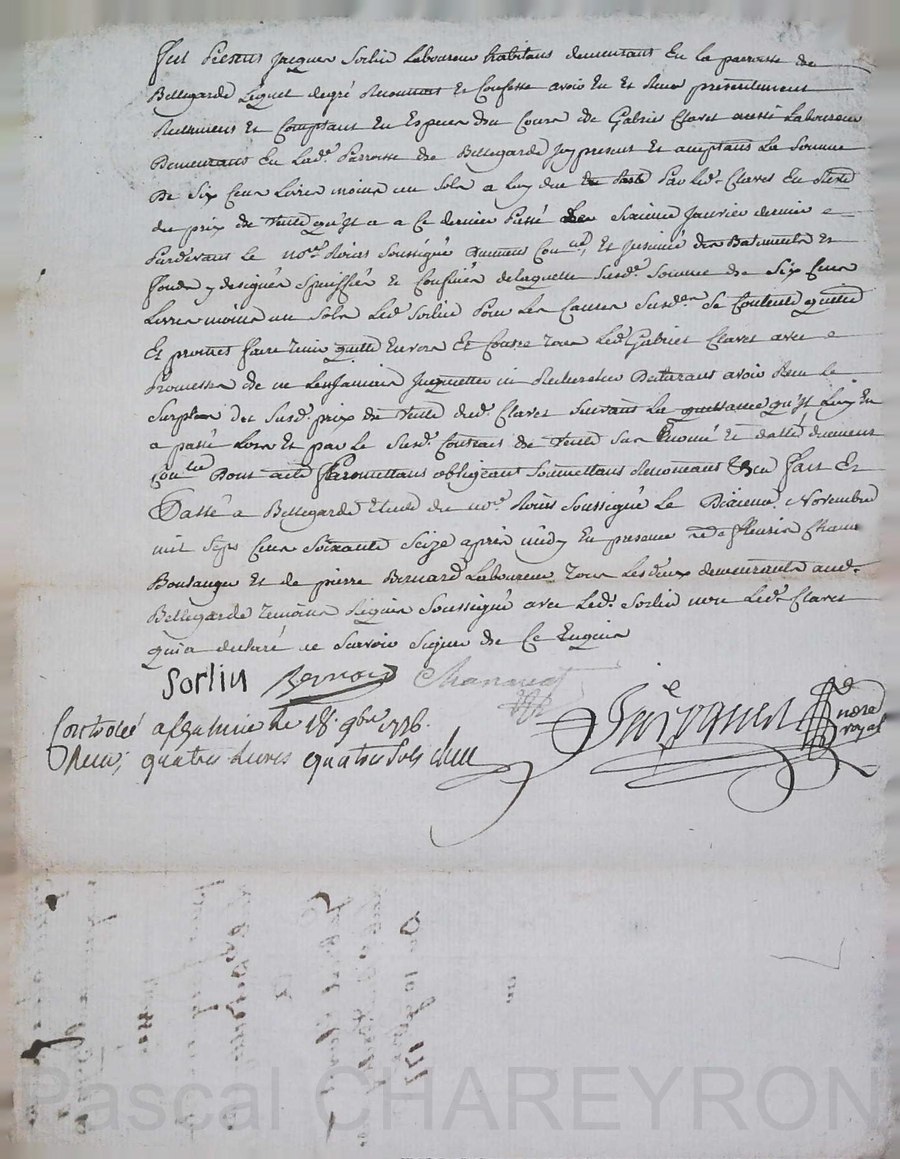 Fut Présens Jacques Sorlin Laboureur habitant demeurant En la parroisse de
Bellegarde Lequel degré Reconnait Et Confesse avoir Eu Et Receu présentement
Réellement Et Comptant En Especes du Cours de Gabriel Claret aussi Laboureur
Demeurant En Lad.e Parroisse de Bellegarde Icy present Et acceptant La Somme
De Six Cens Livres moins un Sols a Luy due Par Led. Claret En Reste
du prix de Vente qu'Il a a Ce dernier Passé Le Janvier dernier
Pardevant Le no.re Roial Soussigné Duement Con.lé, Et Insinué des Batiments Et
fonds y designés Speciffiés Et Confinés de laquelle Susd.e Somme de Six Cens
Livres moins un Sols Led. Sorlin Pour Les Causes Susd.es Se Contente quitte
Et promet faire Tenir quitte Envers Et Contre Tous Led. Gabriel Claret avec
Promesse de ne Lenjamais Inquietter ni Rechercher Declarant avoir Receu Le
Surplus des Susd. prix de Vente dud. Claret Suivant La quittance qu'Il Luy En
a passé Lors Et par Le Susd. Contrat de Vente Sus Enoncé Et datté duement
Con.lé Dont acte Promettans obligeant Soumettans Renonçant Fait Et
Passé a Bellegarde Etude du no.re Roial Soussigné Le Dixieme Novembre
mil Sept Cens Soixante Seize après midy En presence de Fleurie
Boulanger Et de pierre Bernard Laboureur Tous Les deux demeurants aud.
Bellegarde Temoins Requis Soussigné avec Led. Sorlin non Led. Claret
qui a declaré ne Scavoir Signer de Ce Enquis
Sorlin Bernard
Controlé a le 18 9bre 1776.
Receu quatres Livres quatres Sols
no.re royal
Pascal CHAREYRON